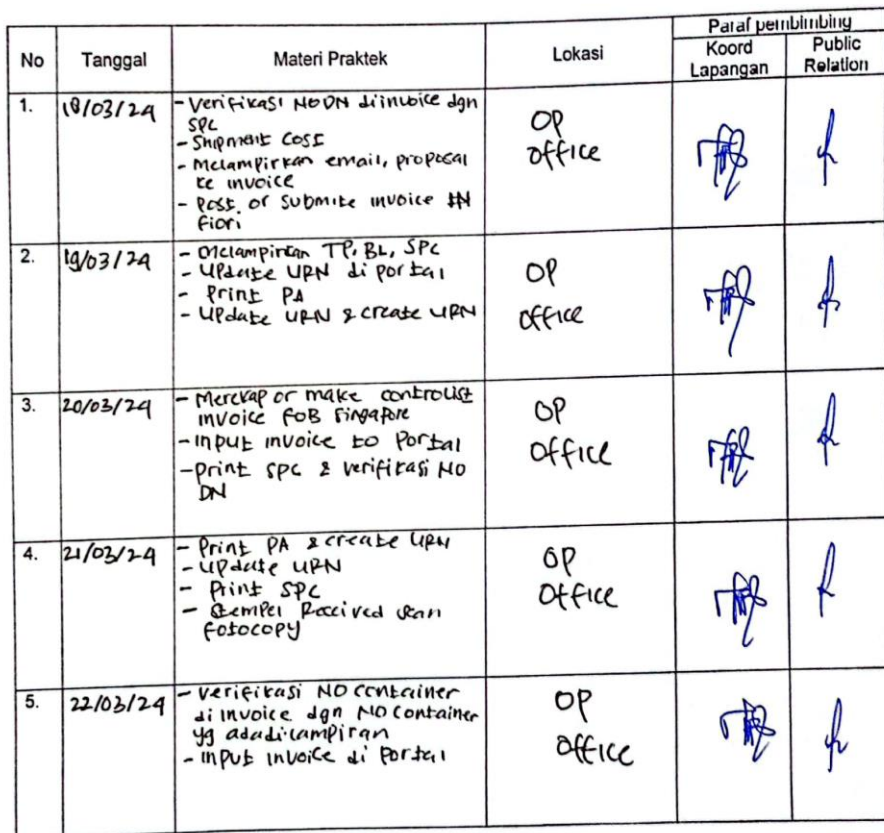 No Tanggal Materi Praktek Lokasi Paraf pembimbing
Koord Lapangan Public Relation
1. 18/03/24
- Verifikasi NO DN diinvoice dgn
SPC
- Shipment Cost
- Melampirkan email, proposal
ke invoice
- Post or Submite invoice IN
fiori
OP
office
2. 19/03/24
- Melampirkan TP, BL, SPC
- Update URN di portal
- Print PA
- Update URN & create URN
OP
office
3. 20/03/24
- Merekap or make controlist
invoice FOB Singapore
- Input invoice to Portal
- print SPC & verifikasi NO
DN
OP
Office
4. 21/03/24
- Print PA & create URN
- Update URN
- Print SPC
- Stempel Received dan
fotocopy
OP
Office
5. 22/03/24
- Verifikasi NO container
di invoice dgn NO container
yg ada dilampiran
- Input invoice di Portal
OP
Office